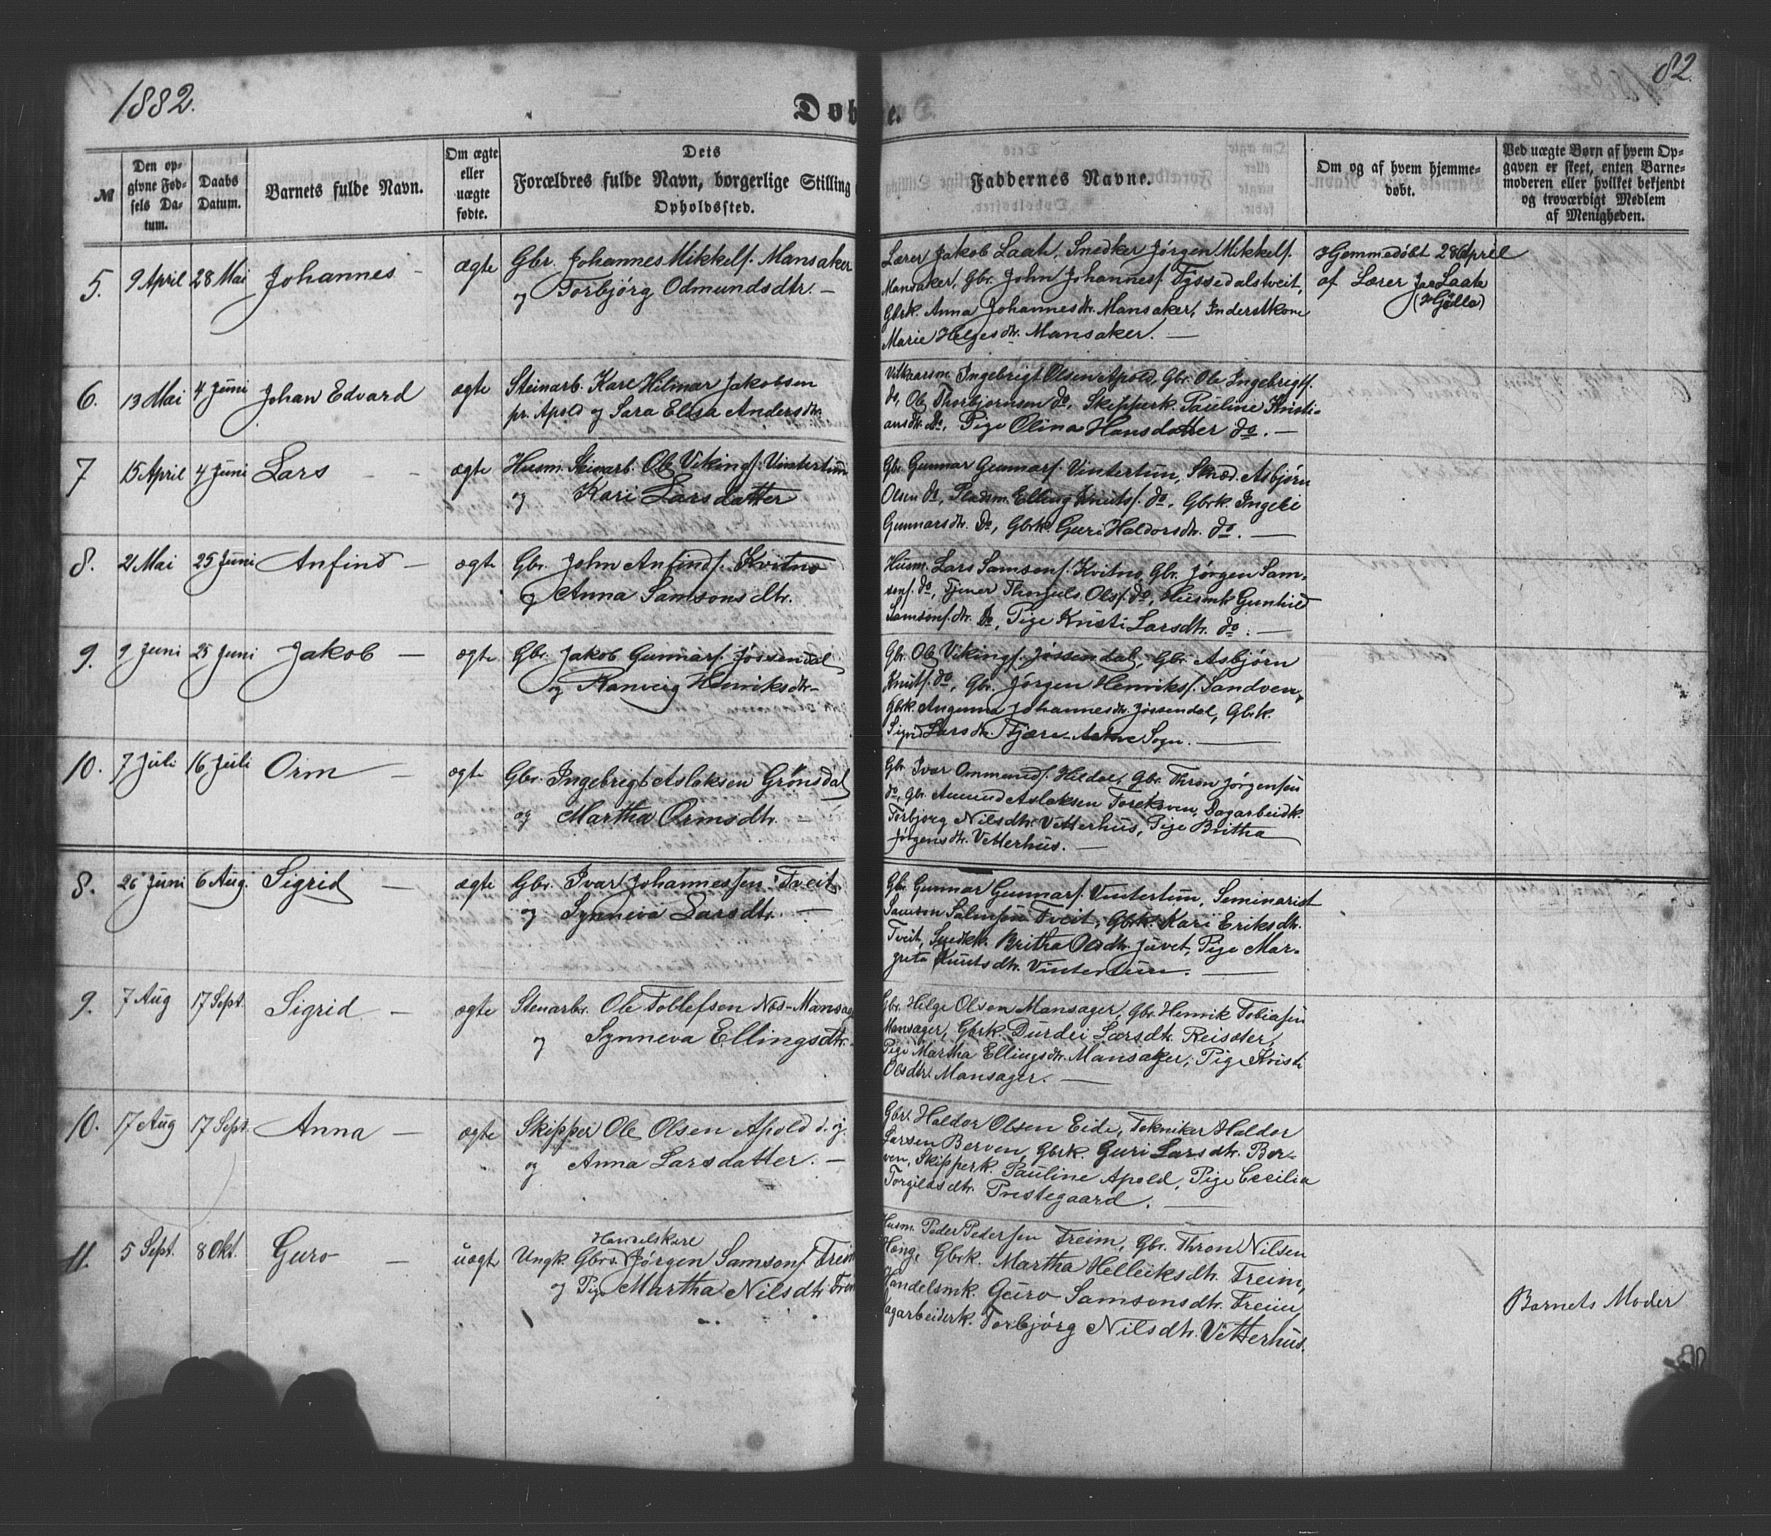 1882.
82.
Døbte.
№
Den opgivne Fødsels Datum.
Daabs Datum.
Barnets fulde Navn.
Om ægte eller uægte fødte.
Dets Forældres fulde Navn, borgerlige Stilling
Opholdssted.
Faddernes Navne.
Om og af hvem hjemmedøbt.
Ved uægte Børn af hvem Opgaven er skeet, enten Barnemoderen eller hvilket bekjendt og troværdigt Medlem af Menigheden.
5. 9 April 28 Mai Johannes – ægte Gbr. Johannes Mikkels. Mansaker
og Torbjörg Odmundsdtr. –
Lærer Jakob Laate, Snedker Jørgen Mikkels.
Mansaker, Gbr. John Johannes. Tyssedalstveit,
Gbrk. Anna Johannesdtr. Mansaker, Inderstkone
Marie Helgesdtr. Mansaker. –
Hjemmedøbt 28 April
af Lærer Jak Laate
6. 13 Mai 4 Juni Johan Edvard ægte Steinarb. Karl Hilmar Jakobsen
pr. Apold og Sara Elisa Andersdtr.
Ingebrigt Olsen Apold, Gbr. Ole Ingebrigts.
do, Ole Thorbjørnsen do, Skipperk. Pauline Kristi-
ansdtr. do, Pige Olina Hansdatter do. –
7 15 April 4 Juni Lars – ægte Husm. Steinarb. Ole Vikings. Vintertun
og Kari Larsdatter
Gbr. Gunnar Gunnars. Vintertun, Asbjørn
Olsen do, Pladsm. Elling Knuts. do, Gbrk. Ingeli
Gunnarsdtr. do, Gbrk. Guri Haldorsdtr. do. –
8. 21 Mai 25 Juni Anfind – ægte Gbr. John Anfinds. Kvitno
og Anna Samsonsdtr.
Husm. Lars Samsons. Kvitno, Gbr. Jørgen Sam-
sons. do, Tjener Thorgils Ols. do, Husmk Gunhild
Samsons.dtr. do, Pige Kristi Larsdtr. do. –
9. 9 Juni 25 Juni Jakob – ægte Gbr. Jakob Gunnars. Jøssendal
og Ranveig Henriksdtr –
Gbr. Ole Vikings. Jøssendal, Gbr. Asbjørn
Knuts. do, Gbr. Jørgen Henriks. Sandven,
Gbrk. Angunna Johannesdtr. Jøssendal, Gbrk.
Sigrid Larsdtr. Sogn. –
10. 7 Juli 16 Juli Orm – ægte Gbr. Ingebrigt Aslaksen Grønsdal
og Martha Ormsdtr. –
Gbr. Ivar Ommunds. Hildal, Gbr. Thron Jørgensen
do, Gbr. Amund Aslaksen Dagarbeidk.
Torbjorg Nilsdtr. Vetterhus, Pige Britha
Jørgensdtr. Vetterhus. –
8. 26 Juni 6 Aug. Sigrid – ægte Gbr. Ivar Johannessen Tveit
og Synneva Larsdtr. –
Gbr. Gunnar Gunnars. Vintertun, Seminarist
Samson Tveit, Gbrk. Kari Eriksdtr.
Tveit, Snedkk. Britha Olsdtr. Juvet, Pige Mar-
greta Knutsdtr. Vintertun. –
9. 7 Aug 17 Sept. Sigrid – ægte Stenarbr. Ole Tollefsen Næs-Mansag
og Synneva Ellingsdtr.
Gbr. Helge Olsen Mansager, Gbr. Henrik Tobiasen
Mansager, Gbrk. Durdei Larsdtr. Reisæter,
Pige Martha Ellingsdtr. Mansaker, Pige Kristi
Olsdtr. Mansager. –
10. 17 Aug 17 Sept. Anna – ægte Skipper Ole Olsen Apold d. y.
og Anna Larsdatter. –
Gbr. Haldor Olsen Eide, Tekniker Haldor
Larsen Berven, Gbrk. Guri Larsdtr. Ber-
ven, Skipperk. Pauline Apold, Pige Cecilia
Torgilsdtr. Prestegaard. –
11. 5 Sept. 8 Okt. Guro – uægte Ungk. Gbrs. Handelskarl Jørgen Samsons. Freim
og Pige Martha Nilsdtr. Freim
Husm. Peder Pedersen Freim, Gbr. Thron Nilsen
Gbrk. Martha Helleiksdtr. Freim,
Handelsmk. Guro Samsonsdtr. Freim
Dagarbeiderk. Torbjørg Nilsdtr. Vetterhus.
Barnets Moder